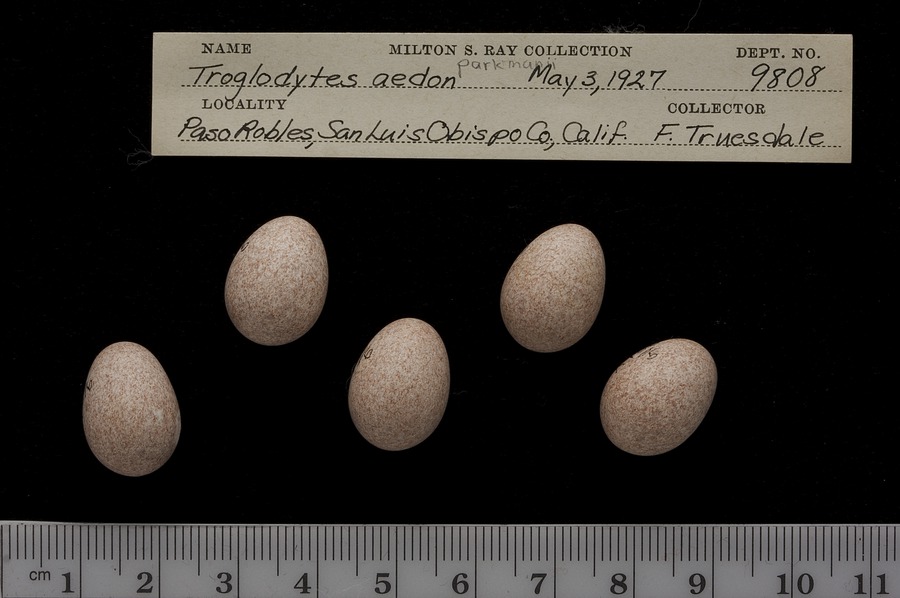 NAME MILTON S. RAY COLLECTION DEPT. NO.
parkmanii
Troglodytes aedon May 3, 1927 9808
LOCALITY COLLECTOR
Paso Robles, San Luis Obispo Co, Calif. F. Truesdale
cm 1 2 3 4 5 6 7 8 9 10 11